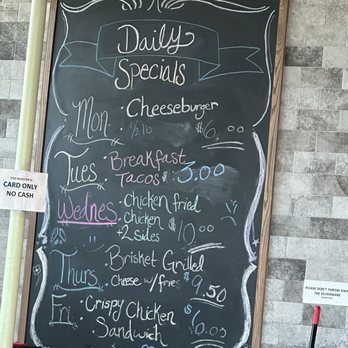 Daily
Specials
Mon · Cheeseburger
1/2 lb $6.00
Tues · Breakfast
Tacos $3.00
Wednes · Chicken fried
chicken
+2 sides $10.00
Thurs · Brisket Grilled
Cheese w/fries $9.50
Fri · Crispy Chicken
Sandwich $6.00
CARD ONLY
NO CASH
PLEASE DON'T THROW AWAY
THE SILVERWARE